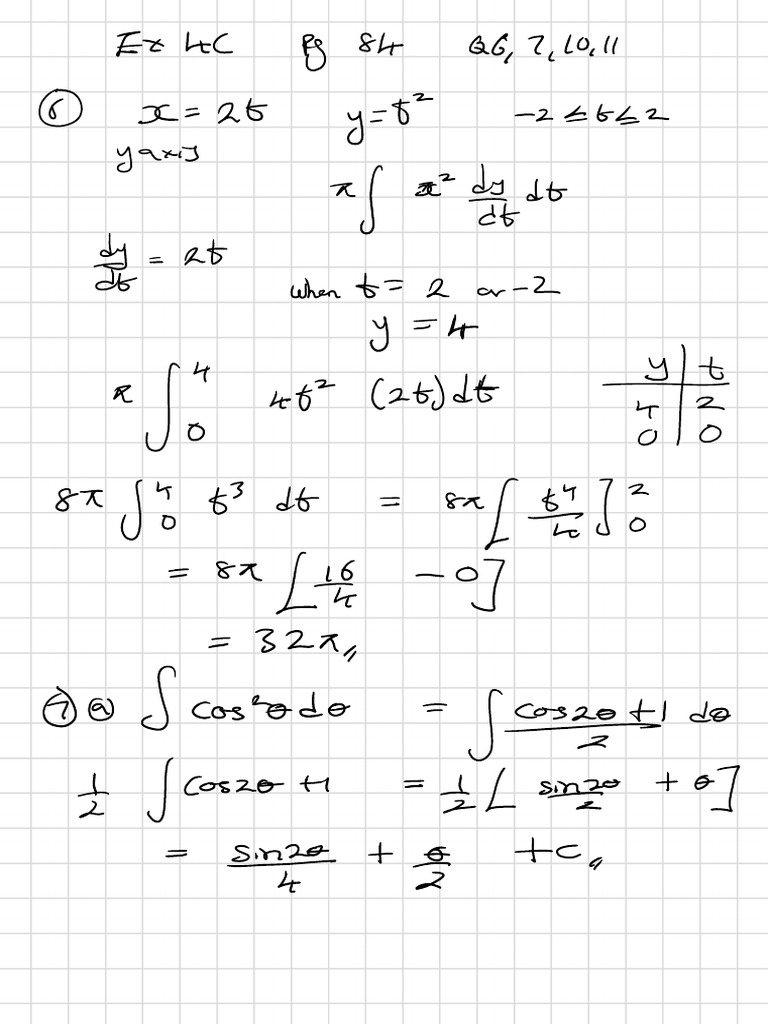 Ex 4C Pg 84 Q6, 7, 10, 11
⑥ x = 2t y = t² -2 ≤ t ≤ 2
y axis
π ∫ x² dy/dt dt
dy/dt = 2t
when t = 2 or -2
y = 4
π ∫₀⁴ 4t² (2t) dt
y | t
4 | 2
0 | 0
8π ∫₀⁴ t³ dt = 8π [t⁴/4]₀²
= 8π [16/4 - 0]
= 32π〃
⑦ ⓐ ∫ cos²θ dθ = ∫ (cos2θ + 1)/2 dθ
1/2 ∫ cos2θ + 1 = 1/2 [sin2θ/2 + θ]
= sin2θ/4 + θ/2 + c〃